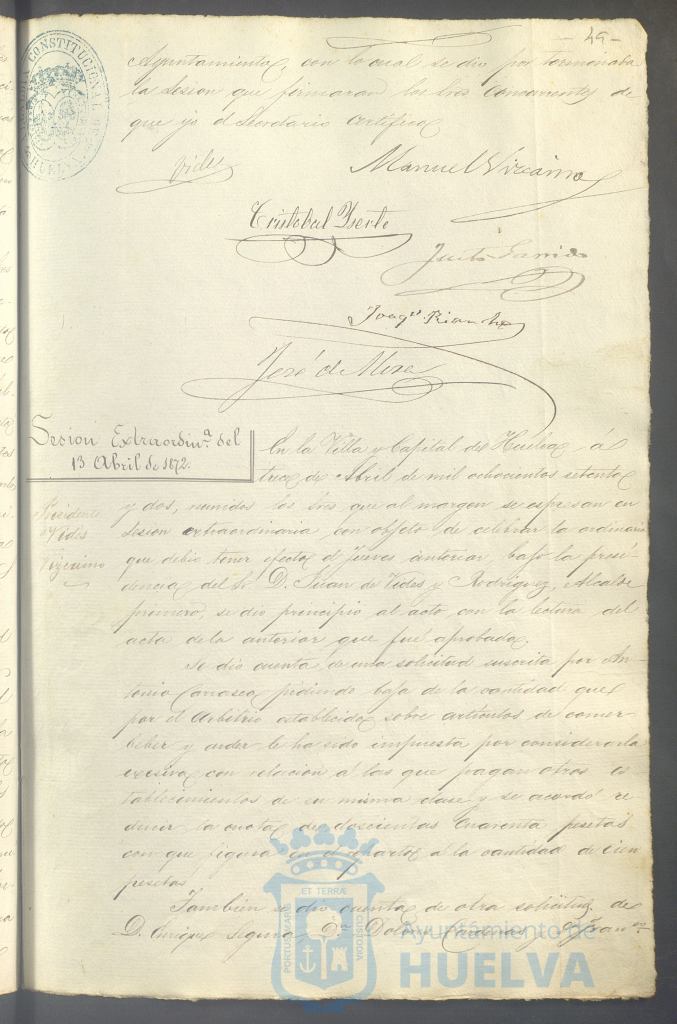 - 49 -
Ayuntamiento, con lo cual se dio por terminada
la sesion que firmaran los Sres concurrentes de
que yo el Secretario certifico
Vides
Manuel Vizcaino
Cristobal Yserte
Justo Garrido
Joaqn.
José de Mora
Sesion Extraordin.a del
13 Abril de 1872.
En la Villa y Capital de Huelva, á
trece de Abril de mil ochocientos setenta
Presidente
Vides
Vizcaino
y dos, reunidos los Sres que al margen se espresan en
sesion extraordinaria, con objeto de celebrar la ordinaria
que debió tener efecto el Jueves anterior, bajo la presi-
dencia del Sr. D. Juan de Vides y Rodriguez, Alcalde
primero, se dio principio al acto con la lectura del
acta de la anterior que fué aprobada.
Se dio cuenta de una solicitud suscrita por An-
tonio Carrasco pidiendo baja de la cantidad que
por el Arbitrio establecido sobre articulos de comer
beber y arder le ha sido impuesta por considerarla
excesiva con relacion á las que pagan otros es
tablecimientos de su misma clase y se acordó re
ducir la cuota de doscientas cuarenta pesetas
con que figura en el reparto á la cantidad de cien
pesetas
Tambien se dio cuenta de otra solicitud de
D. Enrique Segura, D.
ET TERRÆ
PORTUS MARIS
CUSTODIA
Ayuntamiento de
HUELVA
CONSTITUCIONAL
HUELVA